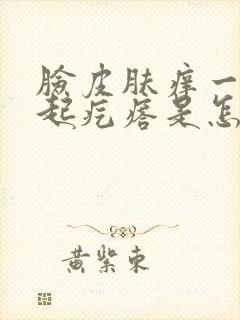 臉皮肤痒一
起疙瘩是怎
黄紫東